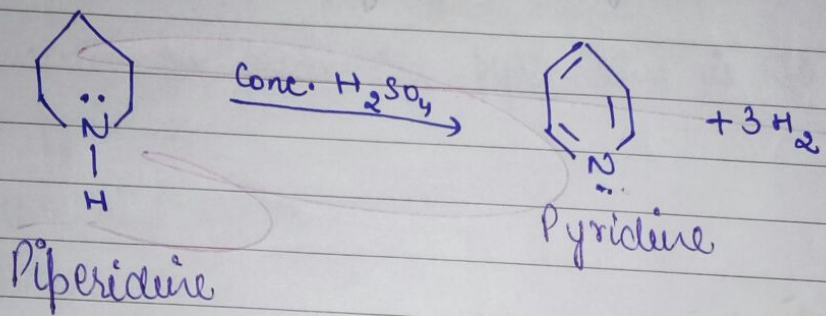 Conc. H2SO4
N
H
N
+ 3H2
Pyridine
Piperidine